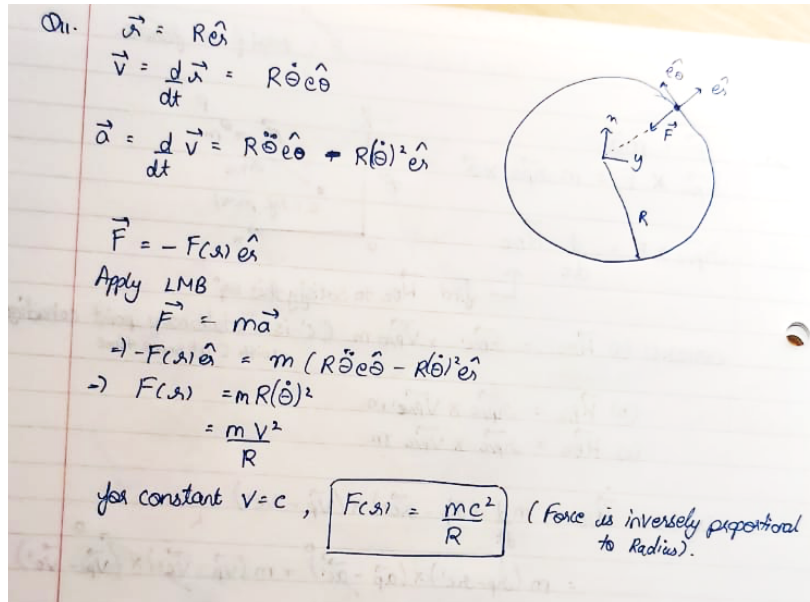 Q11. r⃗ = Rêr
v⃗ = d/dt r⃗ = Rθ̇êθ
a⃗ = d/dt v⃗ = Rθ̈êθ - R(θ̇)²êr
F⃗ = -F(r)êr
Apply LMB
F⃗ = ma⃗
⇒ -F(r)êr = m(Rθ̈êθ - R(θ̇)²êr
⇒ F(r) = mR(θ̇)²
= mv²/R
for constant v=c, F(r) = mc²/R (Force is inversely proportional
to Radius).
êθ
êr
F⃗
y
R